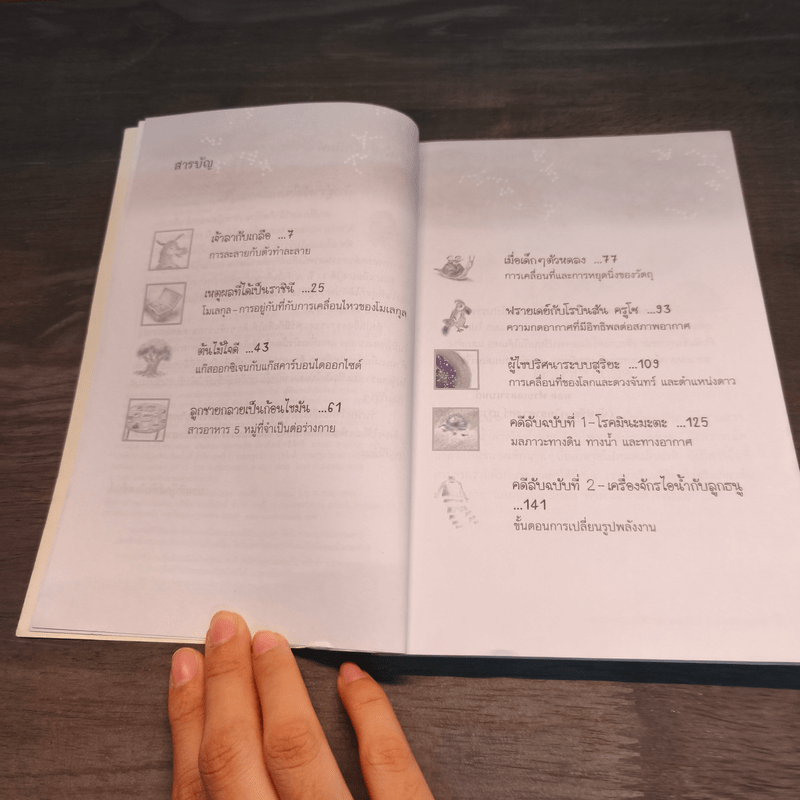 สารบัญ
เจ้าลากับเกลือ ...7
การละลายกับตัวทำละลาย
เหตุผลที่ได้เป็นราชินี ...25
โมเลกุล-การอยู่กับที่กับการเคลื่อนไหวของโมเลกุล
ต้นไม้ใจดี ...43
แก๊สออกซิเจนกับแก๊สคาร์บอนไดออกไซด์
ลูกชายกลายเป็นก้อนไขมัน ...61
สารอาหาร 5 หมู่ที่จำเป็นต่อร่างกาย
เมื่อเด็กๆตัวหดลง ...77
การเคลื่อนที่และการหยุดนิ่งของวัตถุ
ฟรายเดย์กับโรบินสัน ครูโซ ...93
ความกดอากาศที่มีอิทธิพลต่อสภาพอากาศ
ผู้ไขปริศนาระบบสุริยะ ...109
การเคลื่อนที่ของโลกและดวงจันทร์ และตำแหน่งดาว
คดีลับฉบับที่ 1-โรคมินะมะตะ ...125
มลภาวะทางดิน ทางน้ำ และทางอากาศ
คดีลับฉบับที่ 2-เครื่องจักรไอน้ำกับลูกธนู
...141
ขั้นตอนการเปลี่ยนรูปพลังงาน